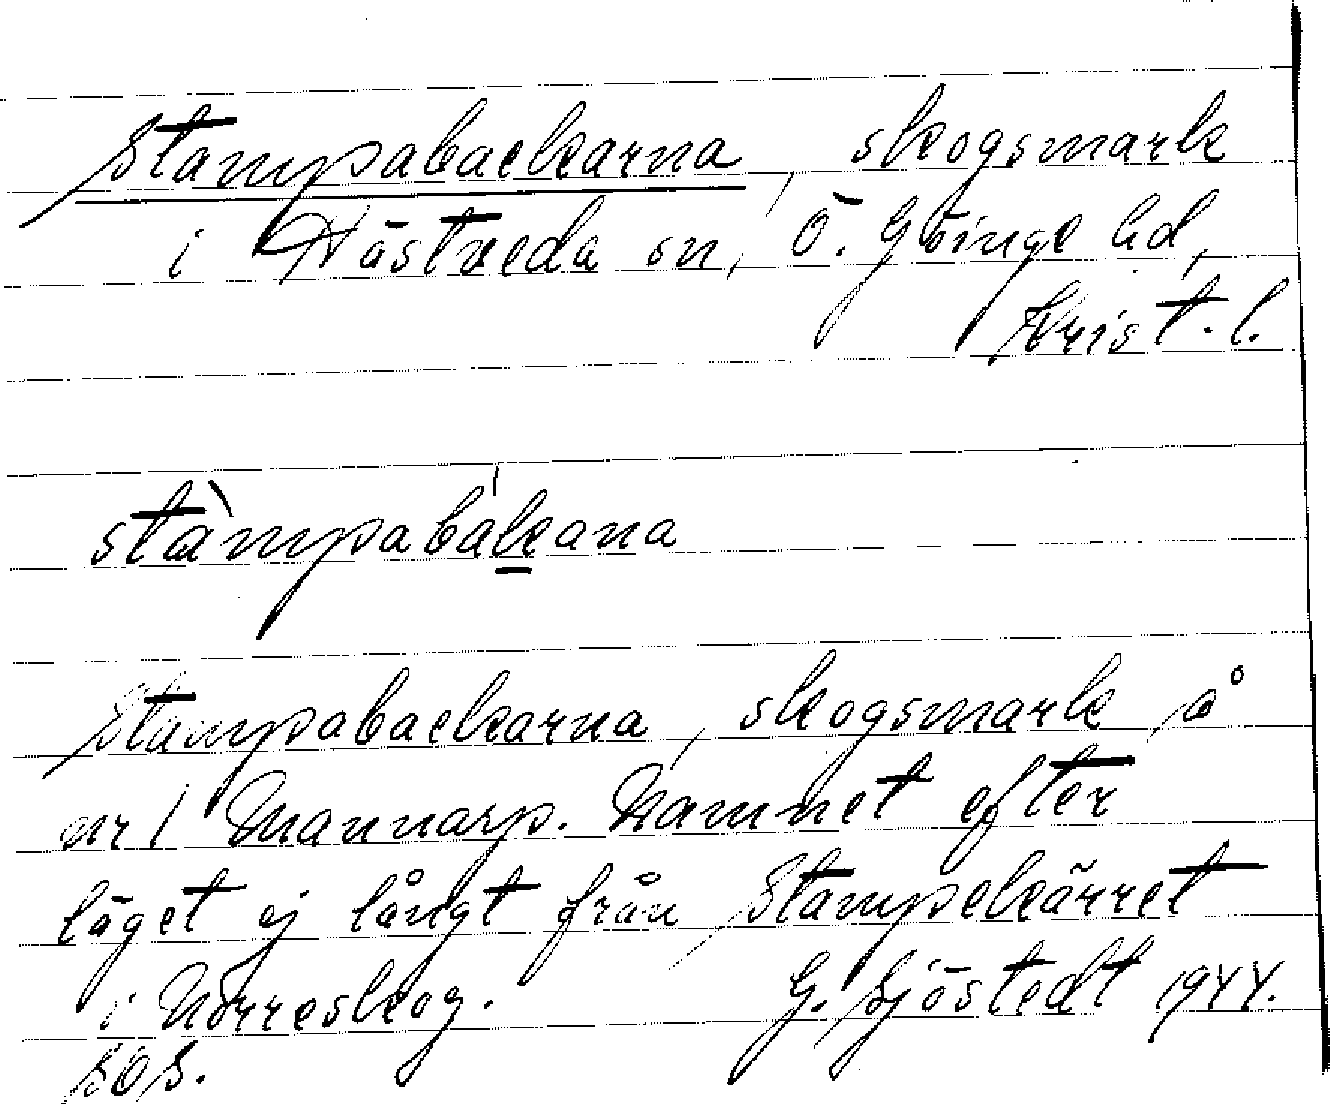 Stampabackarna, skogsmark
i Hästveda sn, Ö. Göinge hd,
Krist. l.
stàmpabákana
Stampabackarna, skogsmark på
nr 1 Mannarp. Namnet efter
läget ej långt från Stampekärret
i Norreskog. G. Sjöstedt 1944.
SOS.